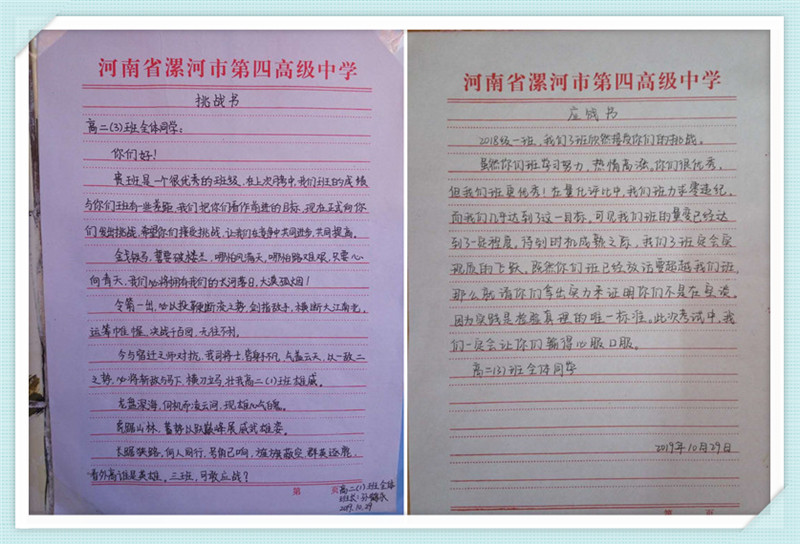 河南省漯河市第四高级中学
挑战书
高二(3)班全体同学:
你们好!
贵班是一个很优秀的班级,在上次月考中,我们班的成绩
与你们班有一些差距,我们把你们看作前进的目标,现在正式向你
们发出挑战,希望你们接受挑战,让我们在竞争中共同进步,共同提高。
金戈铁马,誓要破楼兰,哪怕风满天,哪怕路难艰,只要心
向青天,我们必将拥有我们的长河落日,大漠孤烟!
令箭一出,必以投鞭断流之势,剑指敌手,横断大江南北,
运筹帷幄,决战千百回,无往不利。
今与宿迁之师对抗,我司将士,皆身手不凡,气盖云天,以一敌二
之势,必将斩敌与马下,横刀立马,壮我高二(1)班雄威。
龙盘深海,伺机乔凌云间,现雄心吟白鬼。
虎踞山林,蓄势以跃巅峰展威武雄姿。
长路狭路,何人同行,号角已响,旌旗蔽空 群英逐鹿,
看外高谁是英雄。三班,可敢应战?
第 页
高二(1)班全体
班长:孙
2019.10.29
河南省漯河市第四高级中学
应战书
2018级一班,我们3班欣然接受你们的挑战。
虽然你们班学习努力,热情高涨。你们很优秀,
但我们班更优秀!在量化评比中,我们班力求零违纪,
而我们几乎达到了这一目标,可见我们班的量变已经达
到了一定程度。待到时机成熟之际,我们3班定会实
现质的飞跃。既然你们班已经放话要超越我们班,
那么就请你们拿出实力来证明你们不是在空谈,
因为实践是检验真理的唯一标准。此次考试中,我
们一定会让你们输得心服口服。
高二(3)班全体同学
2019年10月29日
第 页